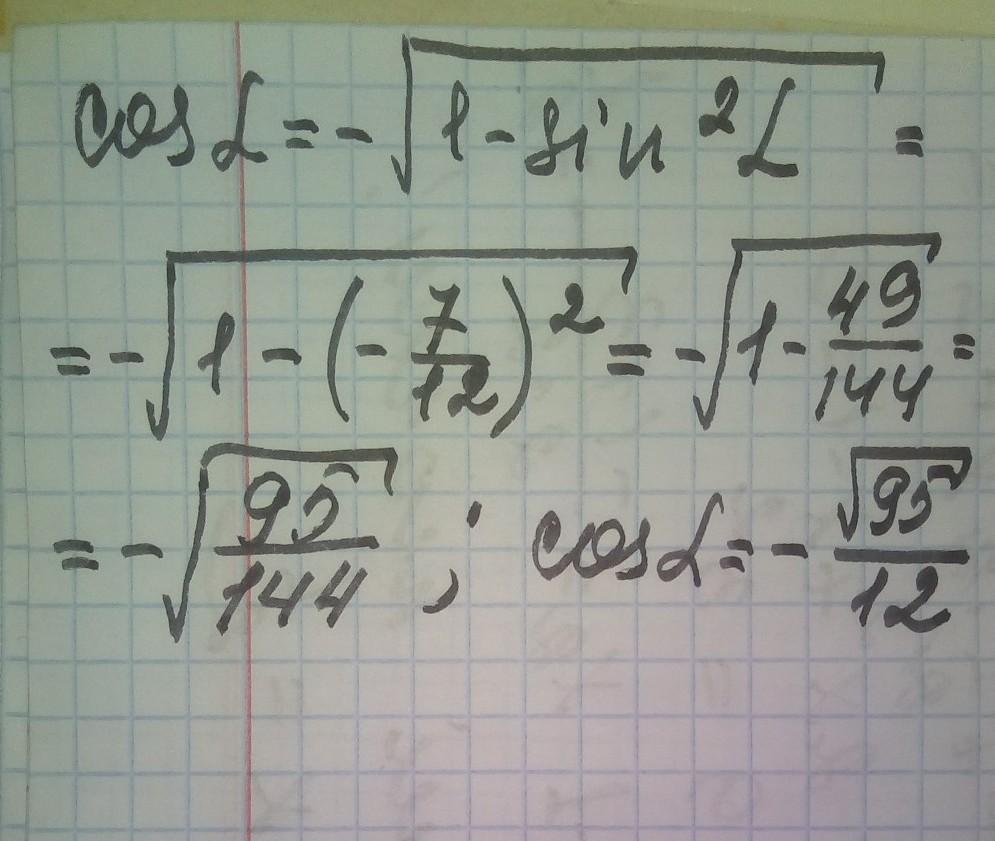 cos α = -√(1 - sin²α) =
= -√(1 - (-7/12)²) = -√(1 - 49/144) =
= -√(95/144) ; cos α = -√95/12